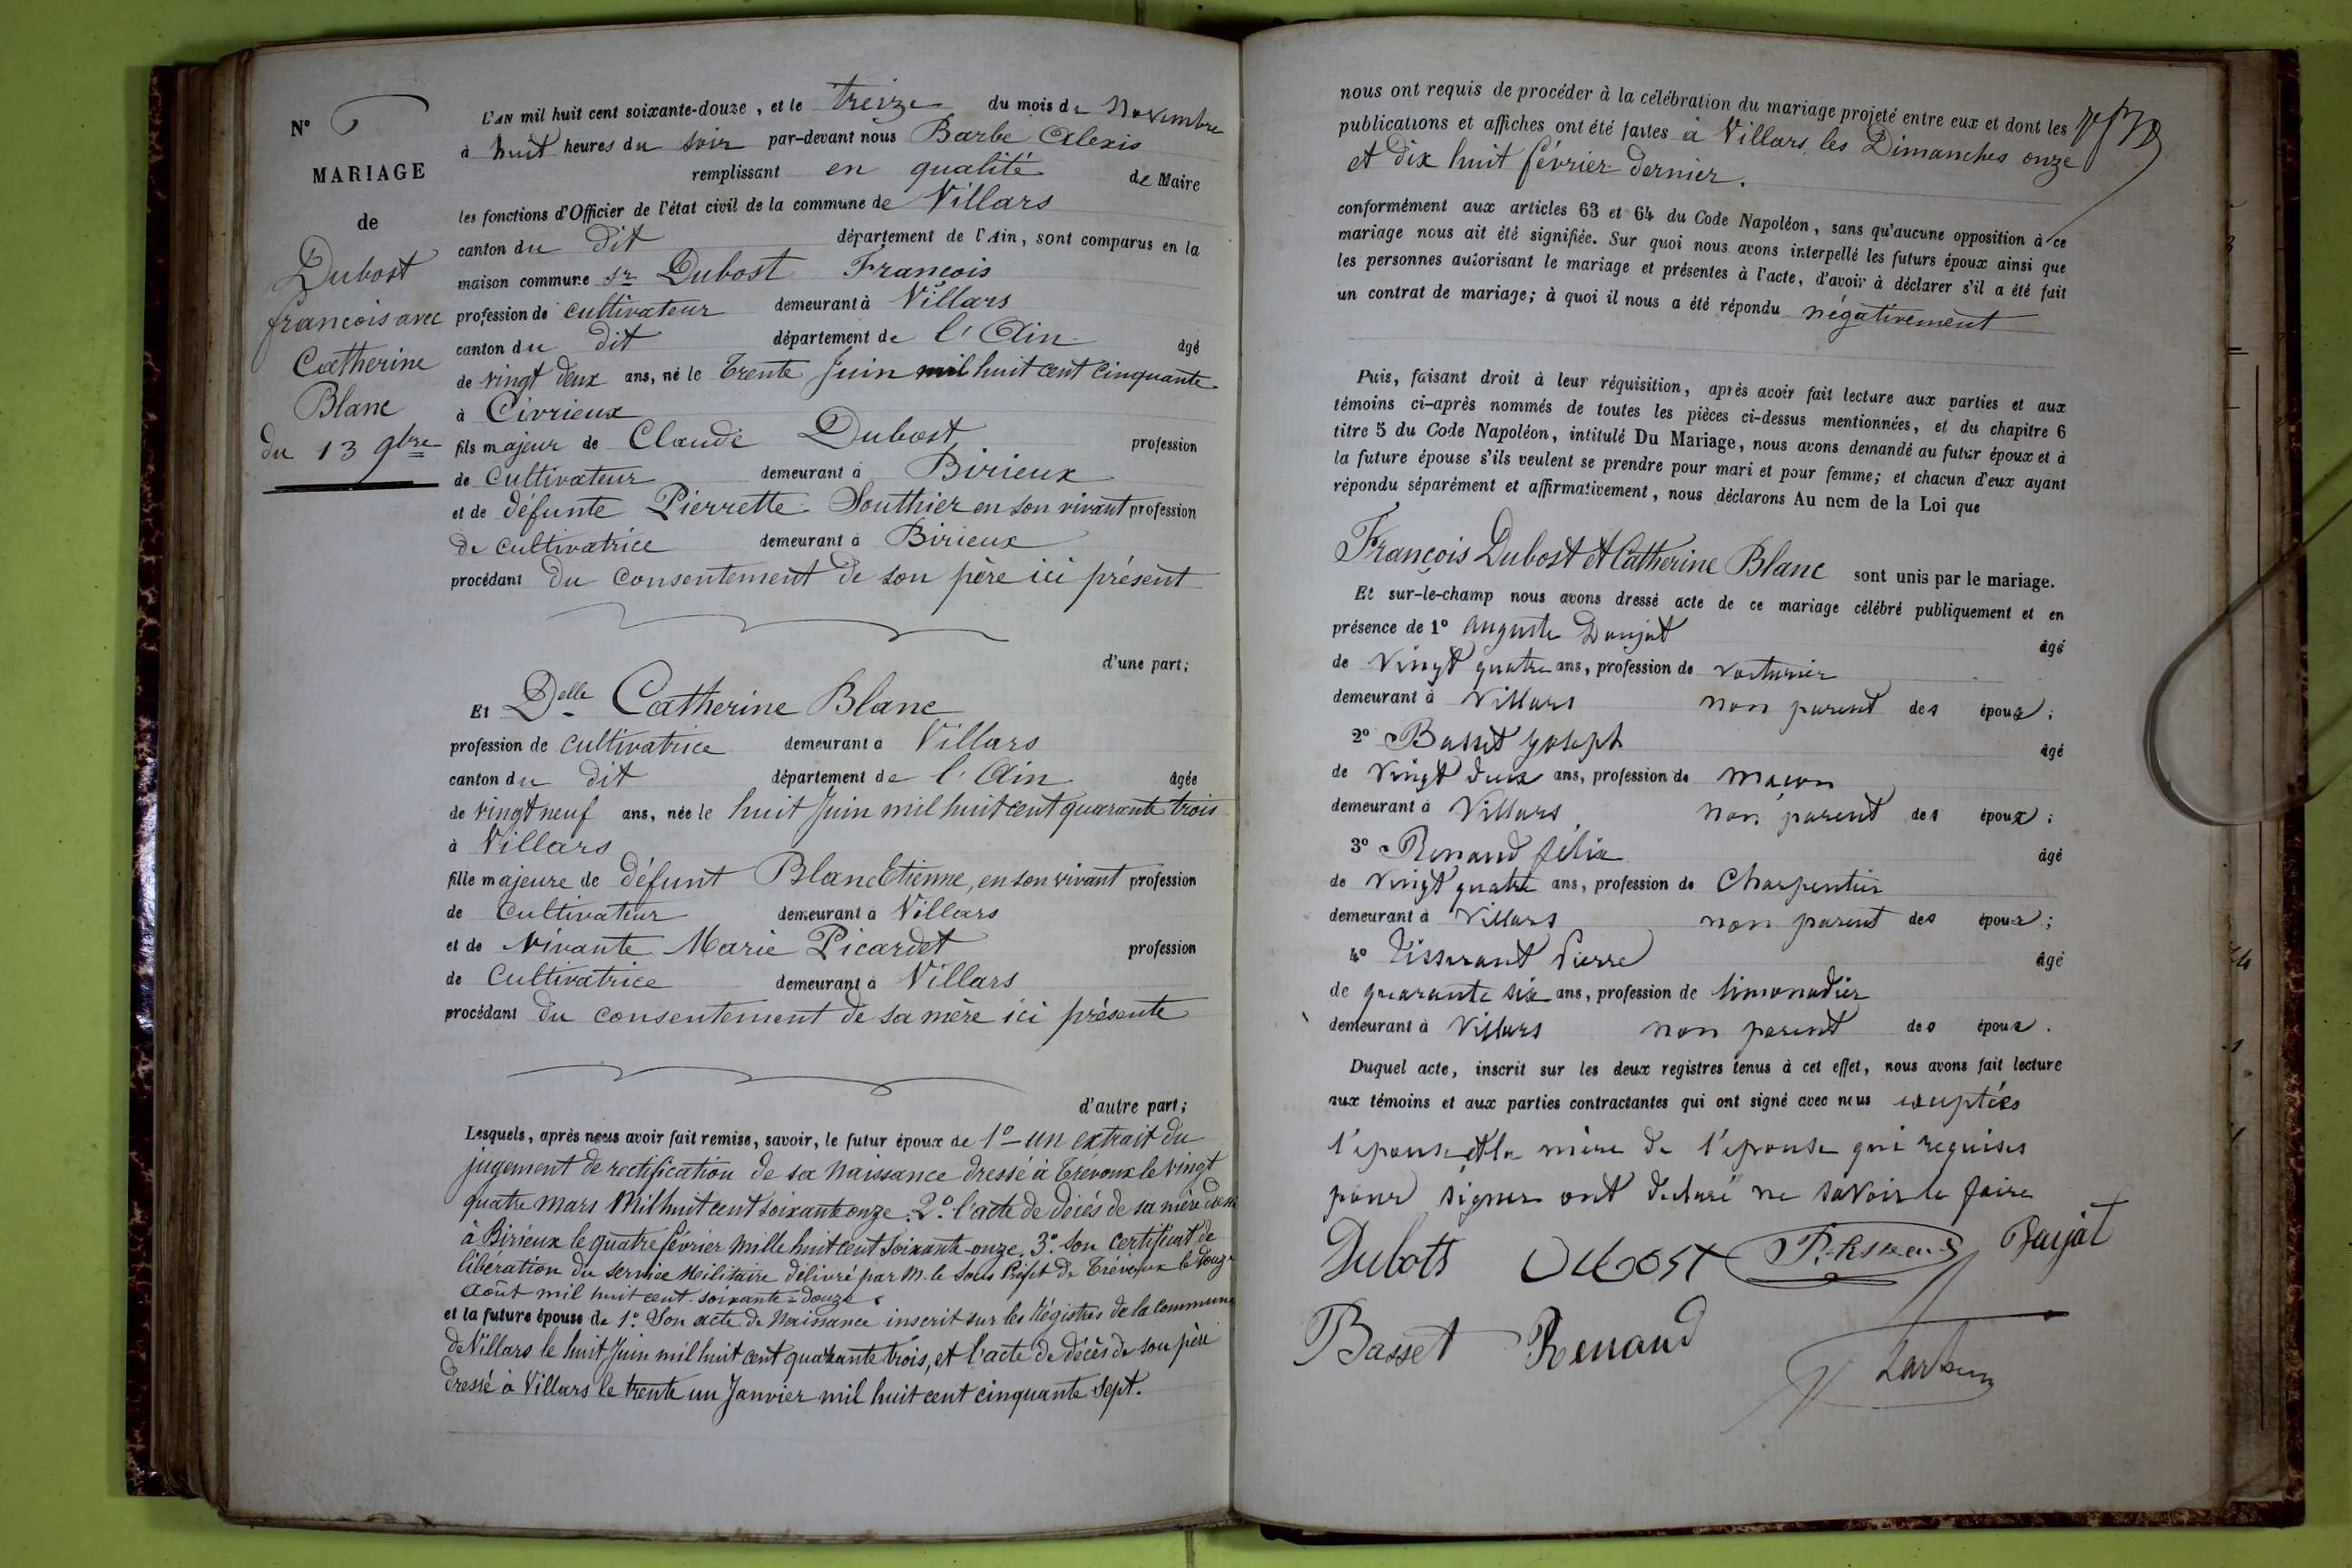 N° 6
MARIAGE
de
Dubost
francois avec
Catherine
Blanc
du 13 9bre
L'AN mil huit cent soixante-douze, et le treize du mois de Novembre
à huit heures du soir par-devant nous Barbe Alexis
remplissant en qualité de Maire
les fonctions d'Officier de l'état civil de la commune de Villars
canton du dit département de l'Ain, sont comparus en la
maison commune sr Dubost François
profession de cultivateur demeurant à Villars
canton du dit département de l'Ain âgé
de vingt deux ans, né le trente Juin mil huit cent cinquante
à Civrieux
fils majeur de Claude Dubost profession
de cultivateur demeurant à Birieux
et de défunte Pierrette Southier en son vivant profession
de cultivatrice demeurant à Birieux
procédant du consentement de son père ici présent
d'une part;
Et Delle Catherine Blanc
profession de cultivatrice demeurant à Villars
canton du dit département de l'Ain âgée
de vingt neuf ans, née le huit Juin mil huit cent quarante trois
à Villars
fille majeure de défunt Blanc Etienne, en son vivant profession
de cultivateur demeurant à Villars
et de vivante Marie Picardet profession
de Cultivatrice demeurant à Villars
procédant du consentement de sa mère ici présente
d'autre part;
Lesquels, après nous avoir fait remise, savoir, le futur époux de 1° un extrait du
jugement de rectification de sa naissance dressé à Trévoux le vingt
quatre mars Mil huit cent soixante onze. 2° l'acte de décés de sa mère
à Birieux le quatre février mille huit cent soixante-onze. 3° son certificat de
libération du service Militaire délivré par M. le Sous Préfet de Trévoux le douze
Août mil huit cent soixante-douze.
et la future épouse de 1° Son acte de Naissance inscrit sur les Régistres de la commune
de Villars le huit Juin mil huit cent quarante trois, et l'acte de décès de son père
dressé à Villars le trente un Janvier mil huit cent cinquante sept.
nous ont requis de procéder à la célébration du mariage projeté entre eux et dont les
publications et affiches ont été faites à Villars les Dimanches onze
et dix huit février dernier.
conformément aux articles 63 et 64 du Code Napoléon, sans qu'aucune opposition à ce
mariage nous ait été signifiée. Sur quoi nous avons interpellé les futurs époux ainsi que
les personnes autorisant le mariage et présentes à l'acte, d'avoir à déclarer s'il a été fait
un contrat de mariage; à quoi il nous a été répondu négativement
Puis, faisant droit à leur réquisition, après avoir fait lecture aux parties et aux
témoins ci-après nommés de toutes les pièces ci-dessus mentionnées, et du chapitre 6
titre 5 du Code Napoléon, intitulé Du Mariage, nous avons demandé au futur époux et à
la future épouse s'ils veulent se prendre pour mari et pour femme; et chacun d'eux ayant
répondu séparément et affirmativement, nous déclarons Au nom de la Loi que
François Dubost et Catherine Blanc sont unis par le mariage.
Et sur-le-champ nous avons dressé acte de ce mariage célébré publiquement et en
présence de 1° auguste Daujat âgé
de vingt quatre ans, profession de voiturier
demeurant à Villars non parent des époux;
2° Basset Joseph âgé
de vingt deux ans, profession de maçon
demeurant à Villars non parent des époux;
3° Renaud félix âgé
de vingt quatre ans, profession de Charpentier
demeurant à Villars non parent des époux;
4° Tisserant Pierre âgé
de quarante six ans, profession de limonadier
demeurant à Villars non parent des époux.
Duquel acte, inscrit sur les deux registres tenus à cet effet, nous avons fait lecture
aux témoins et aux parties contractantes qui ont signé avec nous exceptées
l'épouse et la mère de l'epouse qui requises
pour signer ont déclaré ne savoir le faire
Dubots Dubost Daujat
Basset Renaud